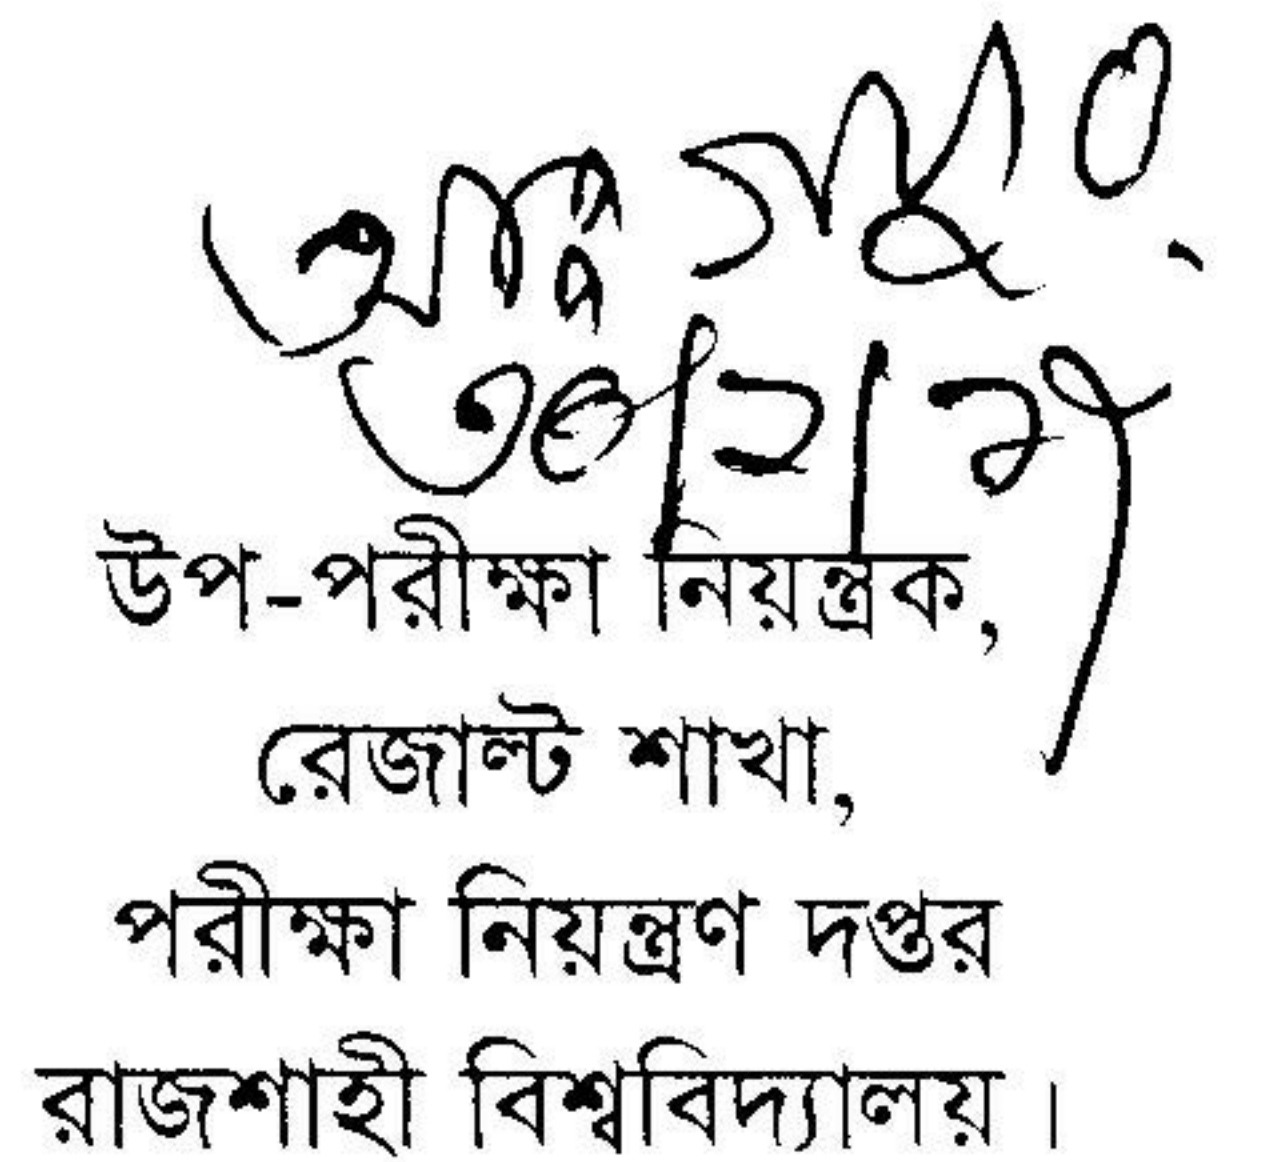 উপ-পরীক্ষা নিয়ন্ত্রক,
রেজাল্ট শাখা,
পরীক্ষা নিয়ন্ত্রণ দপ্তর
রাজশাহী বিশ্ববিদ্যালয় ।